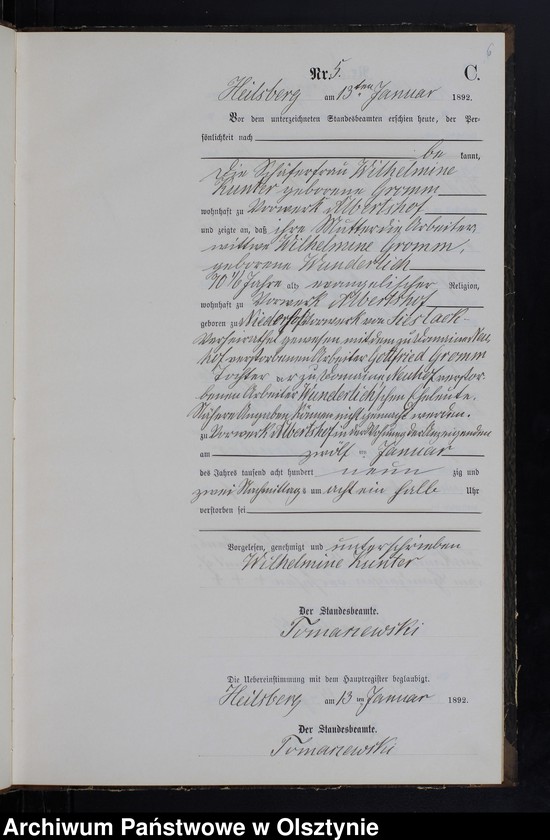 6
Nr. 5. C.
Heilsberg am 13ten Januar 1892.
Vor dem unterzeichneten Standesbeamten erschien heute, der Per-
sönlichkeit nach
be kannt,
die Schäferfrau Wilhelmine
Kunter geborene Gromm
wohnhaft zu Vorwerk Albertshof
und zeigte an, daß ihre Mutter die Arbeiter
wittwe Wilhelmine Gromm,
geborene Wunderlich
70 1/2 Jahre alt, evangelischer Religion,
wohnhaft zu Vorwerk Albertshof
geboren zu Niederhof Vorwerk von
Verheirathet gewesen mit dem zu Domaine Neu
hof verstorbenen Arbeiter Gottfried Gromm
Tochter der zu Domaine Neuhof verstor
benen Arbeiter Wunderlich'schen Eheleute.
Nähere Angaben können nicht gemacht werden.
zu Vorwerk Albertshof in der Wohnung der Anzeigenden
am zwölf ten Januar
des Jahres tausend acht hundert neun zig und
zwei Nachmittags um acht ein halb Uhr
verstorben sei
Vorgelesen, genehmigt und unterschrieben
Wilhelmine Kunter
Der Standesbeamte.
Tomaszewski
Die Uebereinstimmung mit dem Hauptregister beglaubigt.
Heilsberg am 13 ten Januar 1892.
Der Standesbeamte.
Tomaszewski
Archiwum Państwowe w Olsztynie